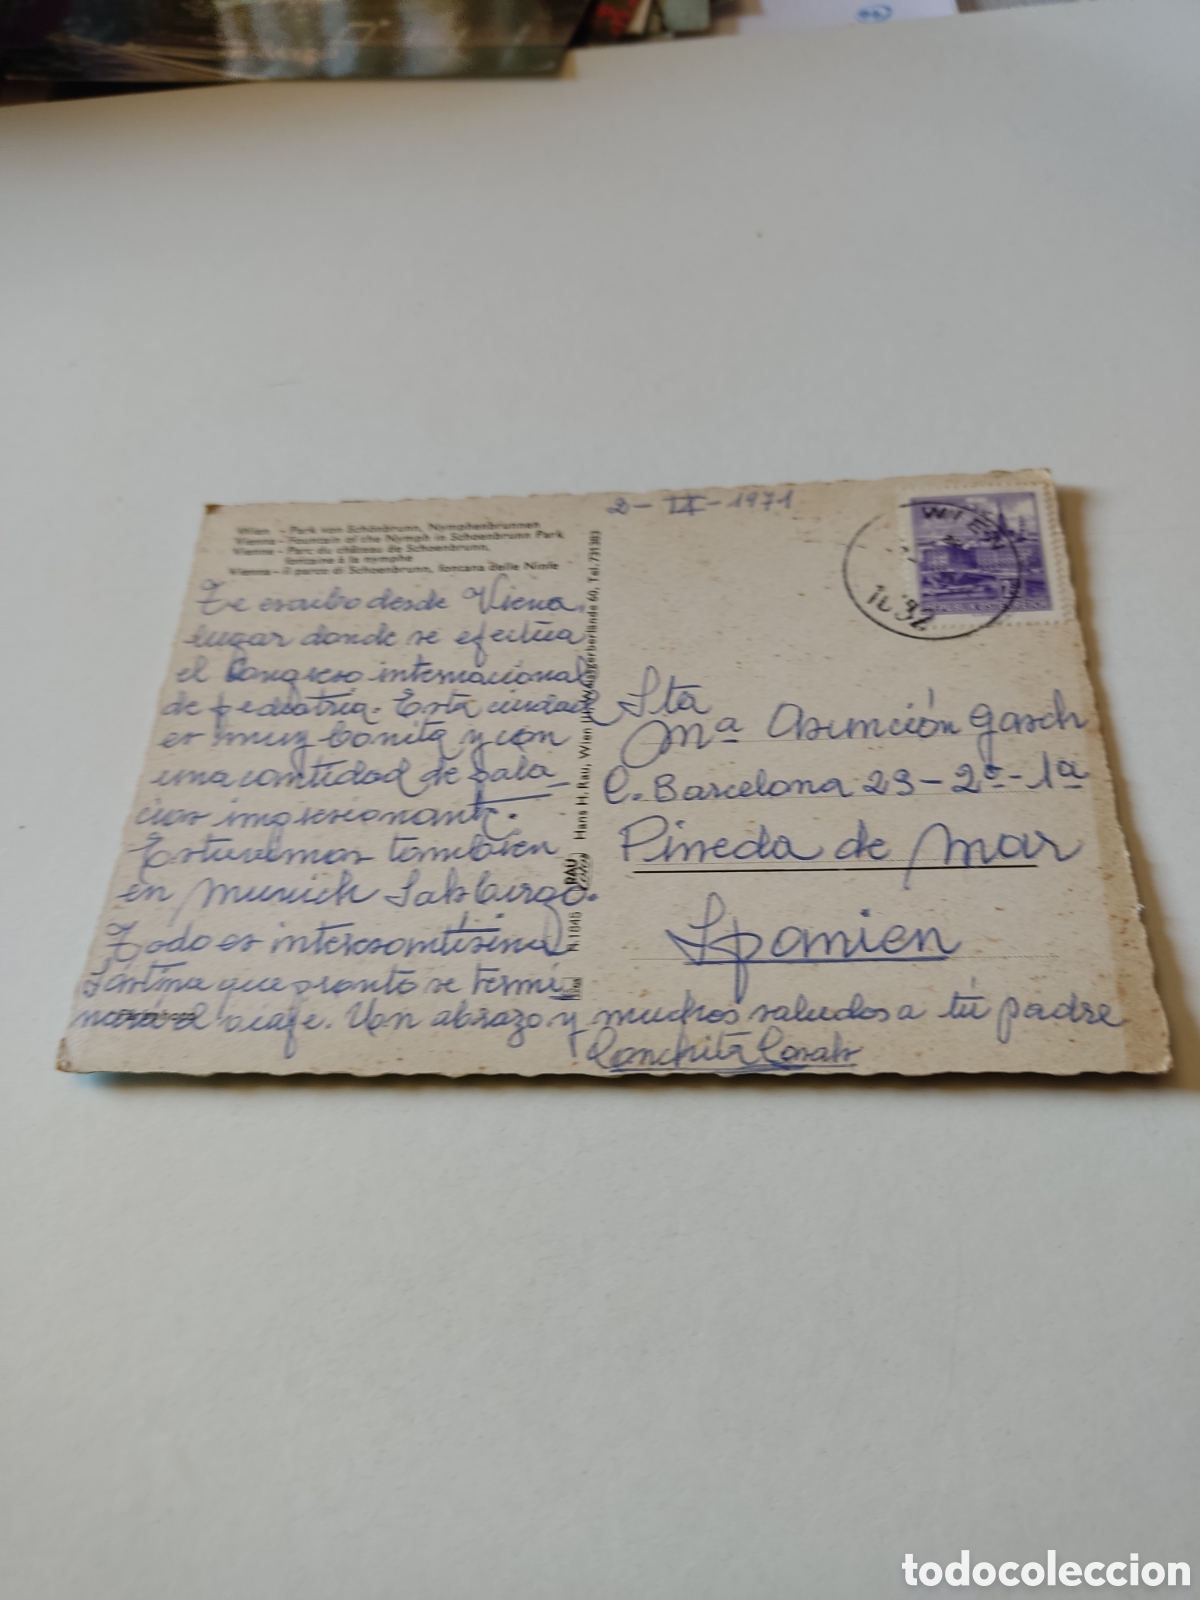 2-IX-1971
Wien - Park von Schönbrunn, Nymphenbrunnen
Vienna - Fountain of the Nymph in Schoenbrunn Park
Vienne - Parc du château de Schoenbrunn,
fontaine à la nymphe
Vienna - il parco di Schoenbrunn, fontana delle Ninfe
Te escribo desde Viena,
lugar donde se efectúa
el Congreso internacional
de pediatría. Esta ciudad
es muy bonita y con
una cantidad de pala
cios impresionante.
Estuvimos también
en Munich Salzburgo.
Todo es interesantísimo
Lástima que pronto se termi
nará el viaje. Un abrazo y muchos saludos a tú padre
Conchita Casals
N. 1845 RAU Hans H. Rau, Wien Weissgerberlände 60, Tel. 731383
WIEN
Sta
Mª Asunción Gasch
C. Barcelona 29-2º-1ª
Pineda de Mar
Spanien
todocoleccion